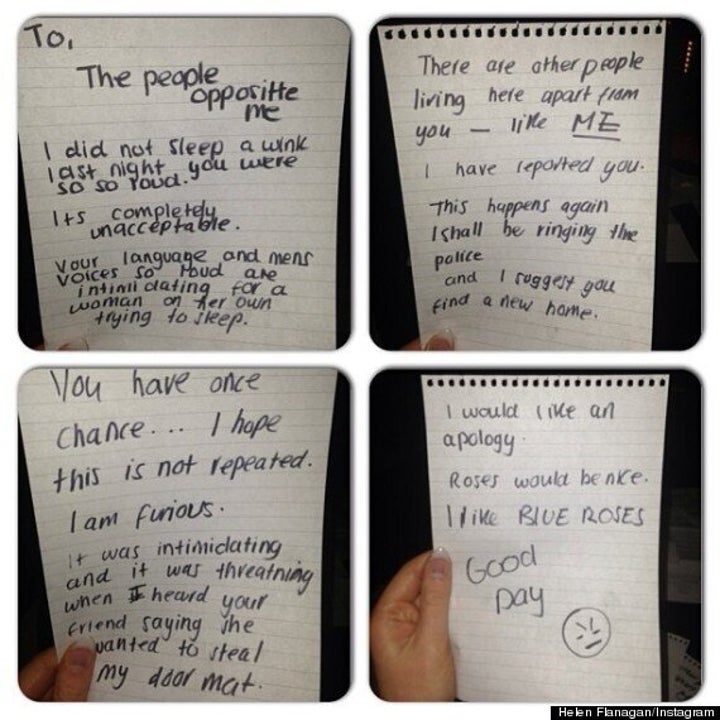 To,
The people
oppositte
me
I did not sleep a wink
last night you were
so so loud.
Its completely
unacceptable.
Your language and mens
voices so loud are
intimidating for a
woman on her own
trying to sleep.
There are other people
living here apart from
you — like ME
I have reported you.
This happens again
I shall be ringing the
police
and I suggest you
find a new home.
You have once
chance.... I hope
this is not repeated.
I am furious.
It was intimidating
and it was threatning
when I heard your
friend saying she
wanted to steal
my door mat.
I would like an
apology.
Roses would be nice.
I like BLUE ROSES
Good
Day
Helen Flanagan/Instagram